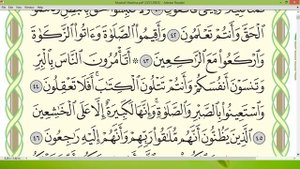 ٱلْحَقَّ وَأَنتُمْ تَعْلَمُونَ ٤٢ وَأَقِيمُوا۟ ٱلصَّلَوٰةَ وَءَاتُوا۟ ٱلزَّكَوٰةَ
وَٱرْكَعُوا۟ مَعَ ٱلرَّٰكِعِينَ ٤٣ ۞ أَتَأْمُرُونَ ٱلنَّاسَ بِٱلْبِرِّ
وَتَنسَوْنَ أَنفُسَكُمْ وَأَنتُمْ تَتْلُونَ ٱلْكِتَٰبَ أَفَلَا تَعْقِلُونَ ٤٤
وَٱسْتَعِينُوا۟ بِٱلصَّبْرِ وَٱلصَّلَوٰةِ وَإِنَّهَا لَكَبِيرَةٌ إِلَّا عَلَى ٱلْخَٰشِعِينَ
٤٥ ٱلَّذِينَ يَظُنُّونَ أَنَّهُم مُّلَٰقُوا۟ رَبِّهِمْ وَأَنَّهُمْ إِلَيْهِ رَٰجِعُونَ ٤٦